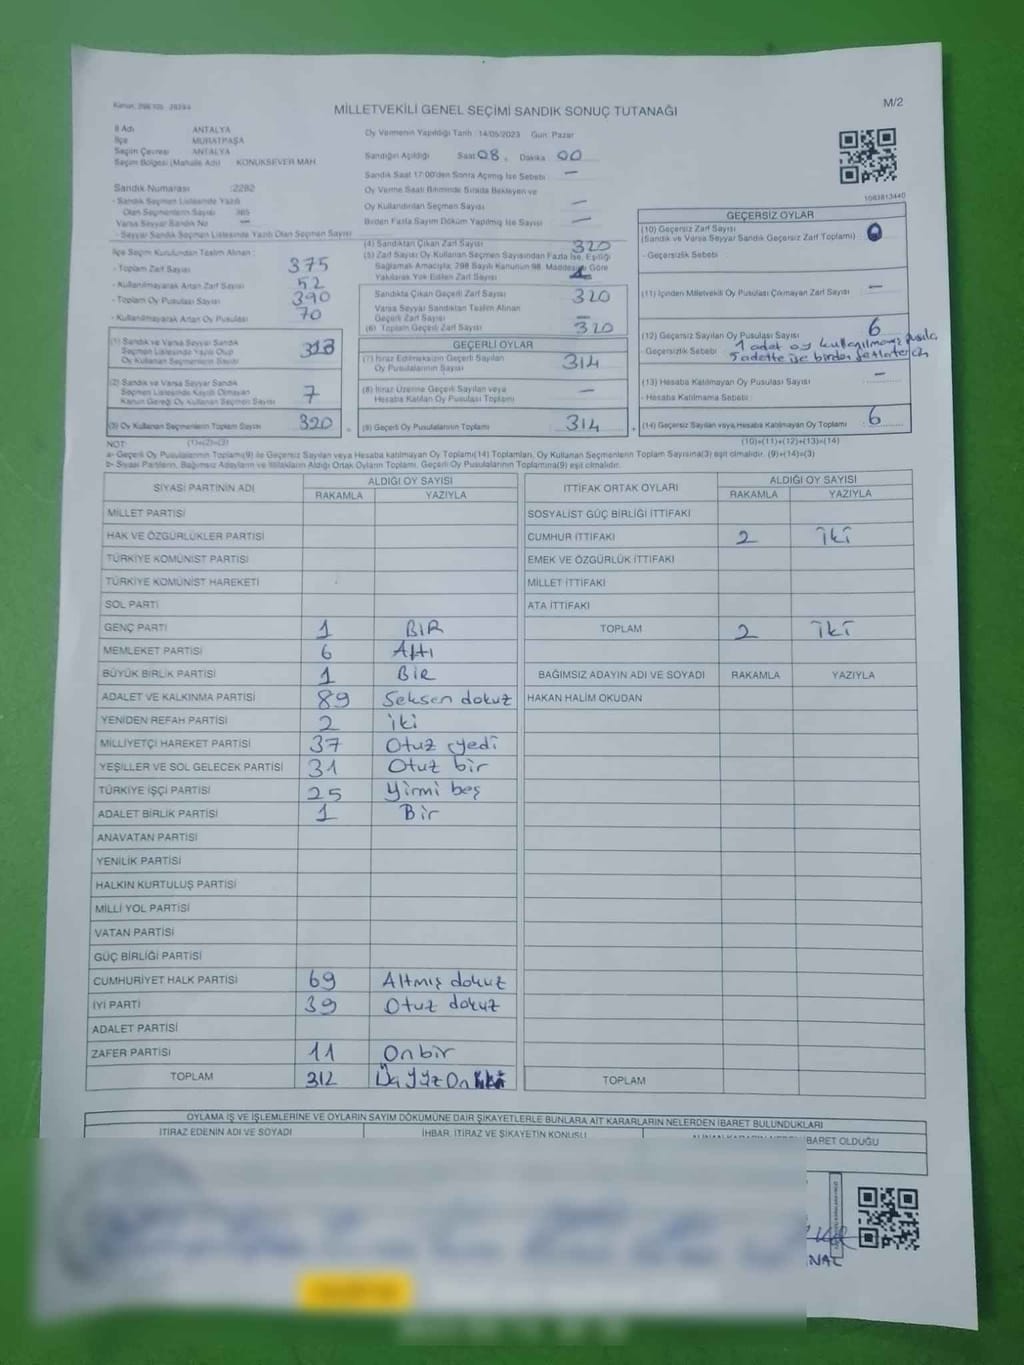 Kanun: 298
MİLLETVEKİLİ GENEL SEÇİMİ SANDIK SONUÇ TUTANAĞI
M/2
İl Adı ANTALYA
İlçe MURATPAŞA
Seçim Çevresi ANTALYA
Seçim Bölgesi (Mahalle Adı) KONUKSEVER MAH.
Oy Vermenin Yapıldığı Tarih : 14/05/2023 Gün: Pazar
Sandığın Açıldığı Saat 08. Dakika 00
Sandık Saat 17:00'den Sonra Açılmış İse Sebebi —
Oy Verme Saati Bitiminde Sırada Bekleyen ve
Oy Kullandırılan Seçmen Sayısı —
Birden Fazla Sayım Döküm Yapılmış İse Sayısı —
1083813440
Sandık Numarası :2282
- Sandık Seçmen Listesinde Yazılı
Olan Seçmenlerin Sayısı 365
Varsa Seyyar Sandık No —
- Seyyar Sandık Seçmen Listesinde Yazılı Olan Seçmen Sayısı
İlçe Seçim Kurulundan Teslim Alınan :
- Toplam Zarf Sayısı 375
- Kullanılmayarak Artan Zarf Sayısı 52
- Toplam Oy Pusulası Sayısı 390
- Kullanılmayarak Artan Oy Pusulası 70
(1) Sandık ve Varsa Seyyar Sandık
Seçmen Listesinde Yazılı Olup
Oy Kullanan Seçmenlerin Sayısı 313
(2) Sandık ve Varsa Seyyar Sandık
Seçmen Listesinde Kayıtlı Olmayan
Kanun Gereği Oy Kullanan Seçmen Sayısı 7
(3) Oy Kullanan Seçmenlerin Toplam Sayısı 320
(1)+(2)=(3)
(4) Sandıktan Çıkan Zarf Sayısı 320
(5) Zarf Sayısı Oy Kullanan Seçmen Sayısından Fazla İse, Eşitliği
Sağlamak Amacıyla, 298 Sayılı Kanunun 98. Maddesine Göre
Yakılarak Yok Edilen Zarf Sayısı
Sandıkta Çıkan Geçerli Zarf Sayısı 320
Varsa Seyyar Sandıktan Teslim Alınan
Geçerli Zarf Sayısı —
(6) Toplam Geçerli Zarf Sayısı 320
GEÇERLİ OYLAR
(7) İtiraz Edilmeksizin Geçerli Sayılan
Oy Pusulalarının Sayısı 314
(8) İtiraz Üzerine Geçerli Sayılan veya
Hesaba Katılan Oy Pusulası Toplamı —
(9) Geçerli Oy Pusulalarının Toplamı 314
GEÇERSİZ OYLAR
(10) Geçersiz Zarf Sayısı
(Sandık ve Varsa Seyyar Sandık Geçersiz Zarf Toplamı) 0
- Geçersizlik Sebebi
(11) İçinden Milletvekili Oy Pusulası Çıkmayan Zarf Sayısı —
(12) Geçersiz Sayılan Oy Pusulası Sayısı 6
Geçersizlik Sebebi 1 adet oy
5 adette ise birden
(13) Hesaba Katılmayan Oy Pusulası Sayısı —
- Hesaba Katılmama Sebebi
(14) Geçersiz Sayılan veya Hesaba Katılmayan Oy Toplamı 6
(10)+(11)+(12)+(13)=(14)
NOT:
a- Geçerli Oy Pusulalarının Toplamı(9) ile Geçersiz Sayılan veya Hesaba katılmayan Oy Toplamı(14) Toplamları, Oy Kullanan Seçmenlerin Toplam Sayısına(3) eşit olmalıdır. (9)+(14)=(3)
b- Siyasi Partilerin, Bağımsız Adayların ve İttifakların Aldığı Ortak Oyların Toplamı, Geçerli Oy Pusulalarının Toplamına(9) eşit olmalıdır.
SİYASİ PARTİNİN ADI ALDIĞI OY SAYISI
RAKAMLA YAZIYLA
MİLLET PARTİSİ
HAK VE ÖZGÜRLÜKLER PARTİSİ
TÜRKİYE KOMÜNİST PARTİSİ
TÜRKİYE KOMÜNİST HAREKETİ
SOL PARTİ
GENÇ PARTİ 1 BİR
MEMLEKET PARTİSİ 6 Altı
BÜYÜK BİRLİK PARTİSİ 1 BİR
ADALET VE KALKINMA PARTİSİ 89 Seksen dokuz
YENİDEN REFAH PARTİSİ 2 iki
MİLLİYETÇİ HAREKET PARTİSİ 37 Otuz yedi
YEŞİLLER VE SOL GELECEK PARTİSİ 31 Otuz bir
TÜRKİYE İŞÇİ PARTİSİ 25 Yirmi beş
ADALET BİRLİK PARTİSİ 1 Bir
ANAVATAN PARTİSİ
YENİLİK PARTİSİ
HALKIN KURTULUŞ PARTİSİ
MİLLİ YOL PARTİSİ
VATAN PARTİSİ
GÜÇ BİRLİĞİ PARTİSİ
CUMHURİYET HALK PARTİSİ 69 Altmış dokuz
İYİ PARTİ 39 Otuz dokuz
ADALET PARTİSİ
ZAFER PARTİSİ 11 On bir
TOPLAM 312 Üç Yüz On
İTTİFAK ORTAK OYLARI ALDIĞI OY SAYISI
RAKAMLA YAZIYLA
SOSYALİST GÜÇ BİRLİĞİ İTTİFAKI
CUMHUR İTTİFAKI 2 iki
EMEK VE ÖZGÜRLÜK İTTİFAKI
MİLLET İTTİFAKI
ATA İTTİFAKI
TOPLAM 2 iki
BAĞIMSIZ ADAYIN ADI VE SOYADI RAKAMLA YAZIYLA
HAKAN HALİM OKUDAN
TOPLAM
OYLAMA İŞ VE İŞLEMLERİNE VE OYLARIN SAYIM DÖKÜMÜNE DAİR ŞİKAYETLERLE BUNLARA AİT KARARLARIN NELERDEN İBARET BULUNDUKLARI
İTİRAZ EDENİN ADI VE SOYADI
İHBAR, İTİRAZ VE ŞİKAYETİN KONUSU
İBARET OLDUĞU